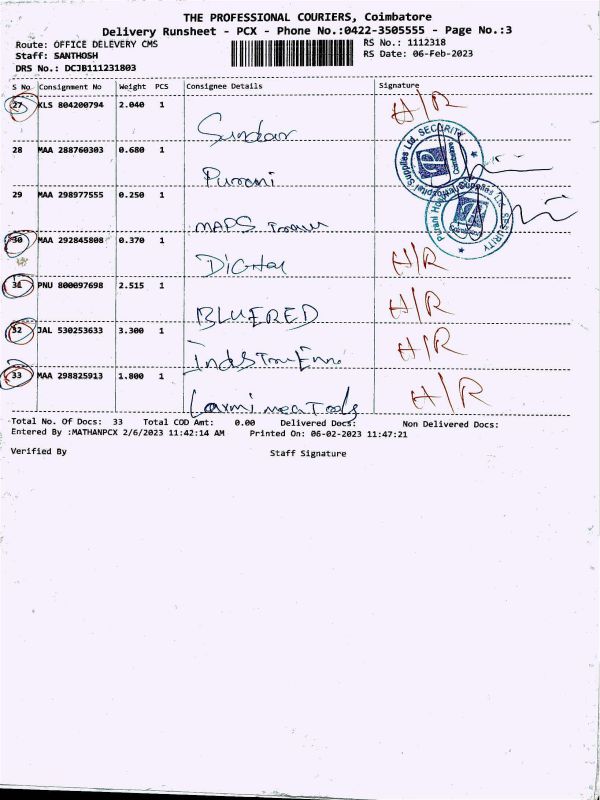 THE PROFESSIONAL COURIERS, Coimbatore
Delivery Runsheet - PCX - Phone No.:0422-3505555 - Page No.:3
Route: OFFICE DELEVERY CMS
RS No.: 1112318
Staff: SANTHOSH
RS Date: 06-Feb-2023
DRS No.: DCJB111231803
S No Consignment No Weight PCS Consignee Details Signature
27 KLS 804200794 2.040 1 H/R
Sundar
28 MAA 288760303 0.680 1
Purani
29 MAA 298977555 0.250 1
MAPS
30 MAA 292845808 0.370 1 H/R
Digital
31 PNU 800097698 2.515 1 H/R
BLUERED
32 JAL 530253633 3.300 1 H/R
33 MAA 298825913 1.800 1 H/R
Laxmi mea Tools
Purani Hospital Supplies Ltd. SECURITY
Coimbatore
Purani Hospital Supplies Ltd. SECURITY
Coimbatore
Total No. Of Docs: 33 Total COD Amt: 0.00 Delivered Docs: Non Delivered Docs:
Entered By :MATHANPCX 2/6/2023 11:42:14 AM Printed On: 06-02-2023 11:47:21
Verified By Staff Signature